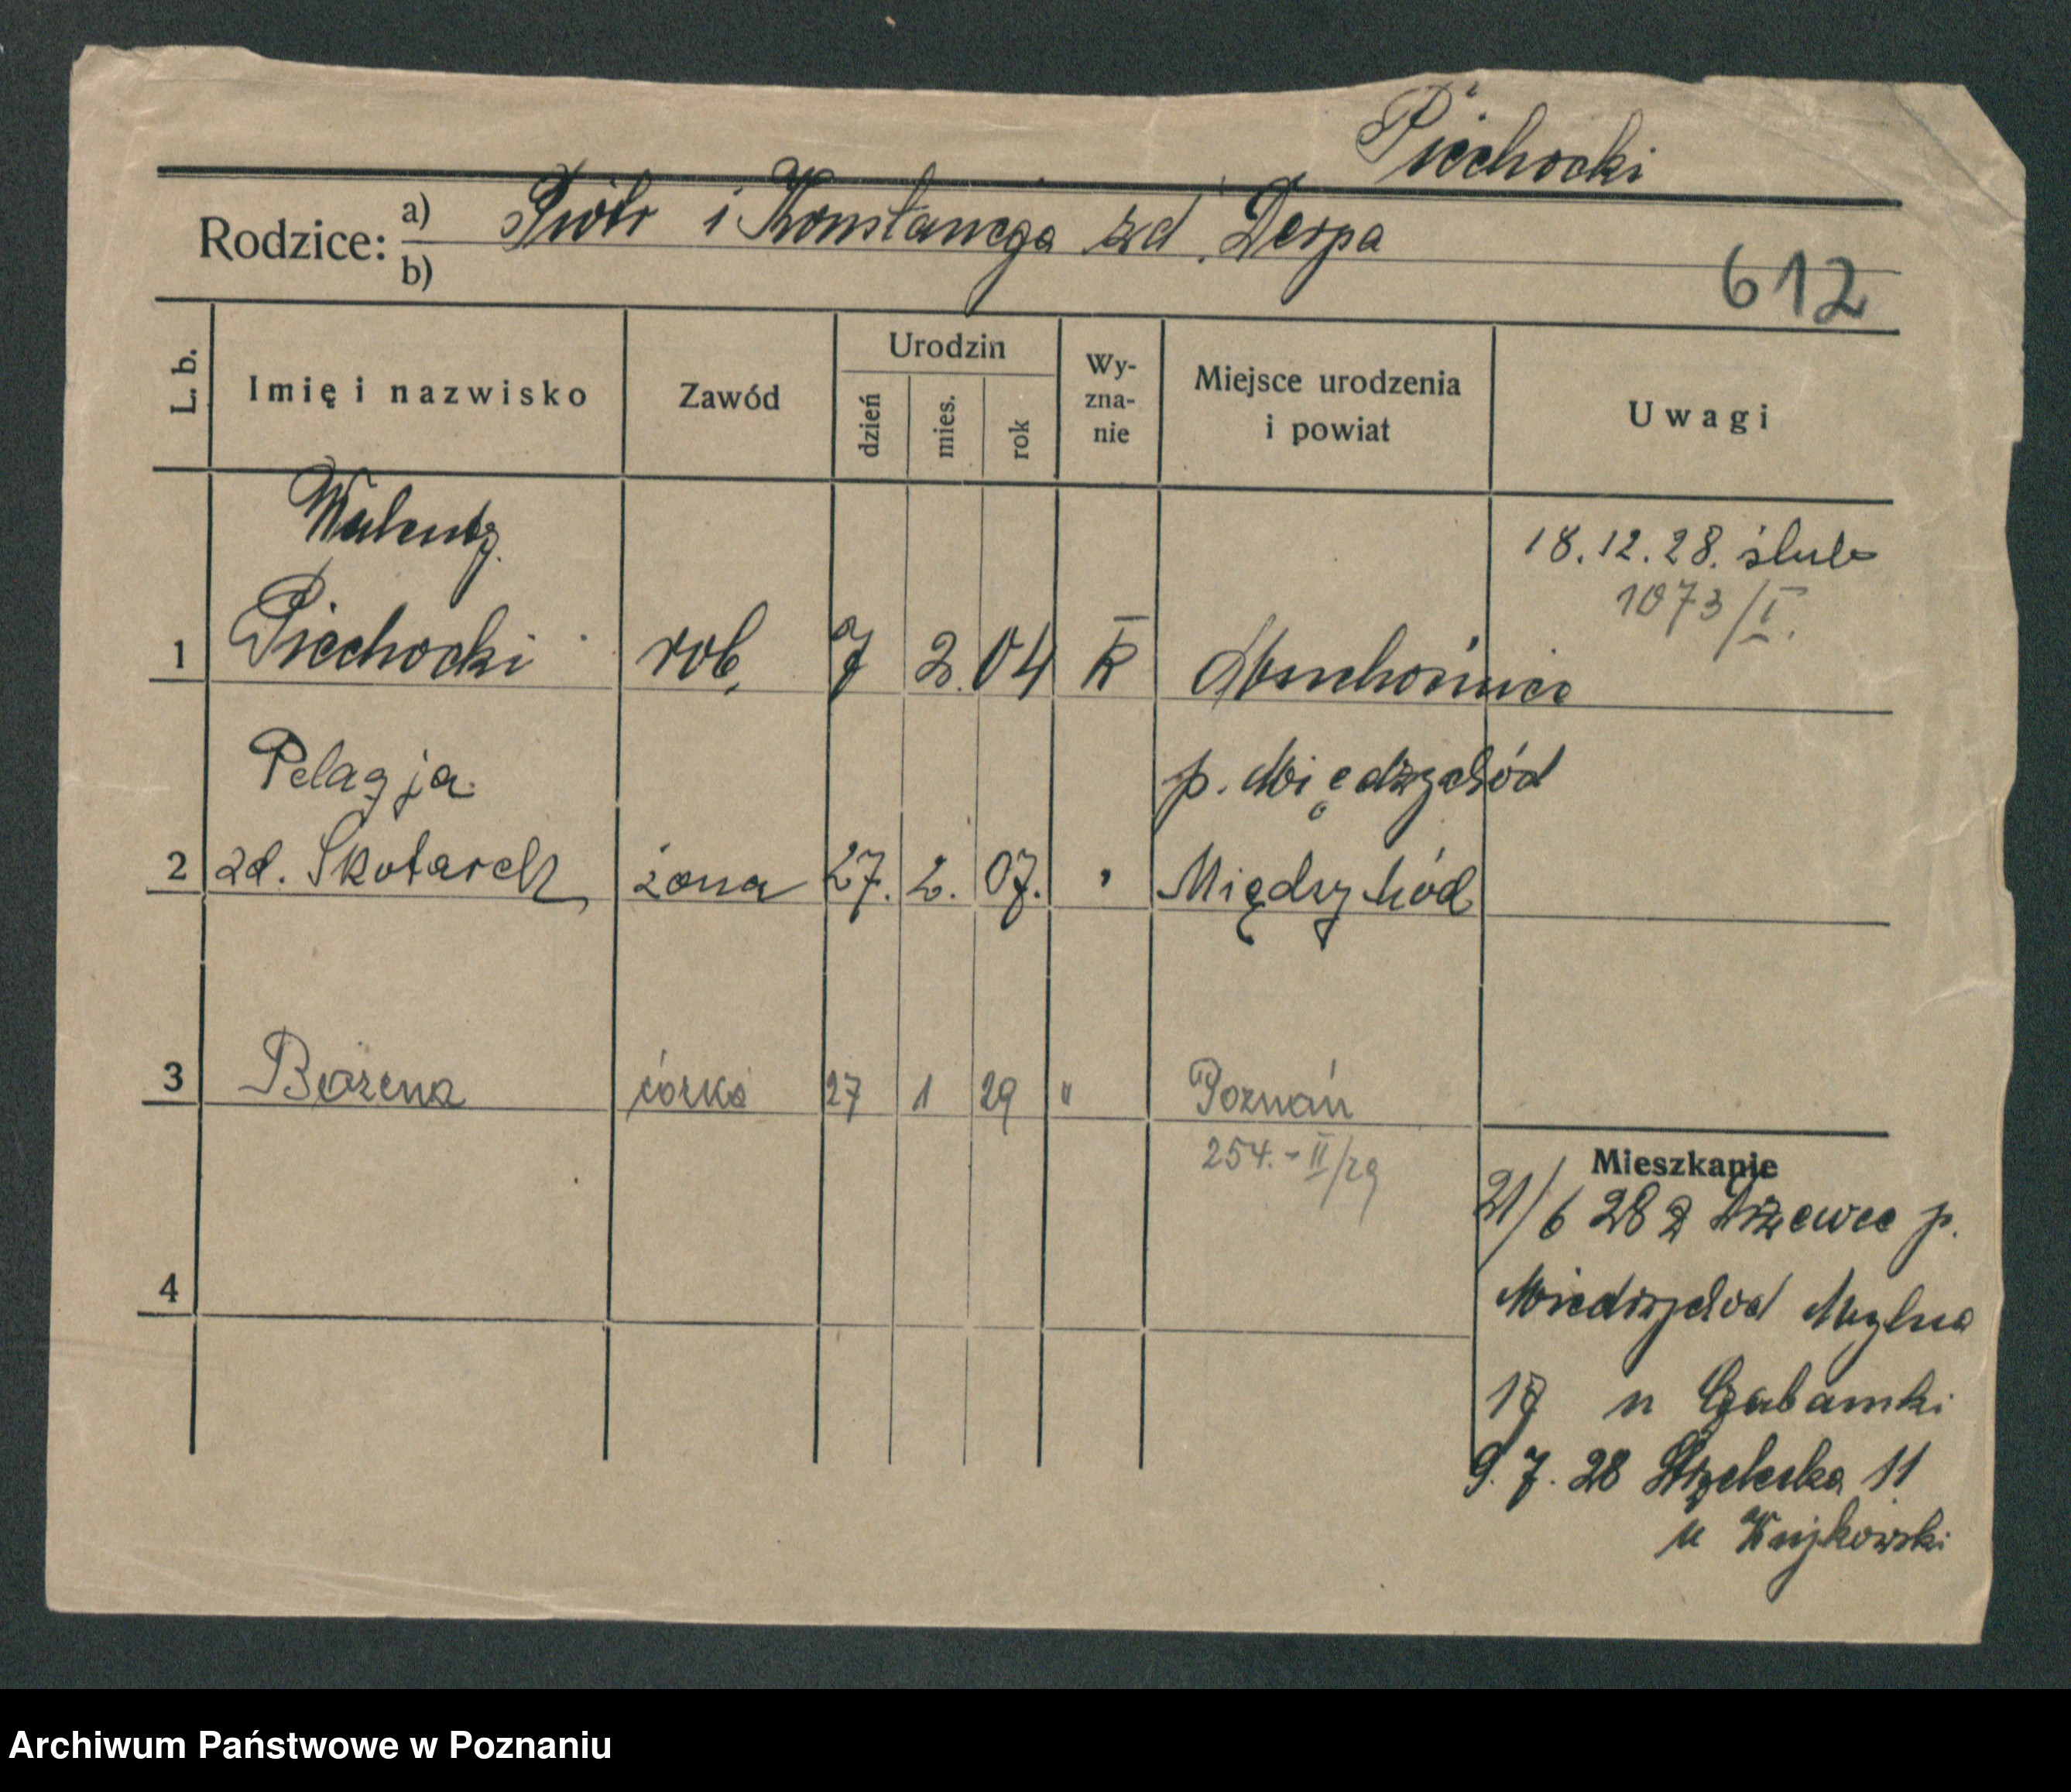 Piechocki
Rodzice: a) Piotr i Konstancya zd. Derpa
b)
612
L. b. Imię i nazwisko Zawód Urodzin dzień mies. rok Wy-zna-nie Miejsce urodzenia i powiat Uwagi
Walenty
18.12.28. ślub
1073/I.
1 Piechocki rob. 7 2. 04 K
Pelagja p. Międzychód
2 zd. Skotarek żona 27. 2. 07. " Międzychód
3 Bożena córka 27 1 29 " Poznań
254.-II/29
Mieszkanie
21/6 28 z Drzewce p.
Miedzychod Mylna
17 u
4
9. 7. 28 Strzelecka 11
u Kujkowski
Archiwum Państwowe w Poznaniu